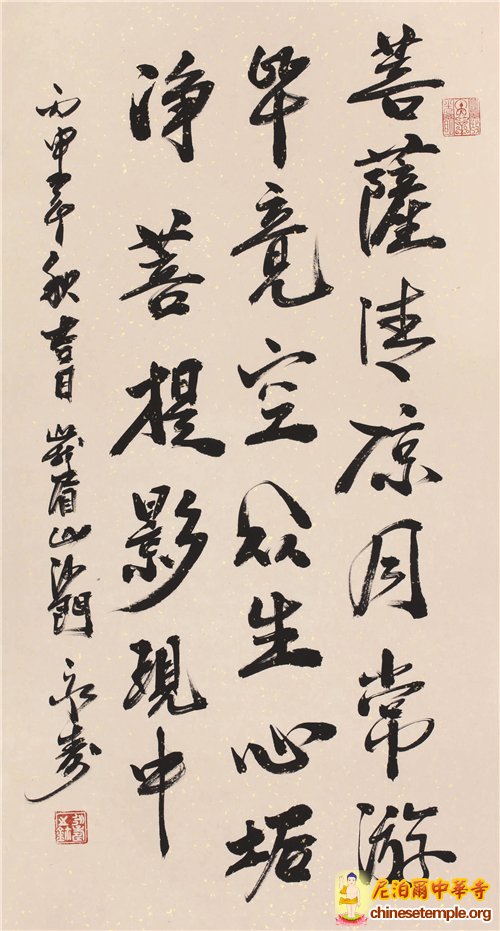 菩薩清凉月常游
毕竟空众生心垢
净菩提影现中
丙申年秋吉日峨眉山沙門永寿
尼泊爾中華寺
chinesetemple.org